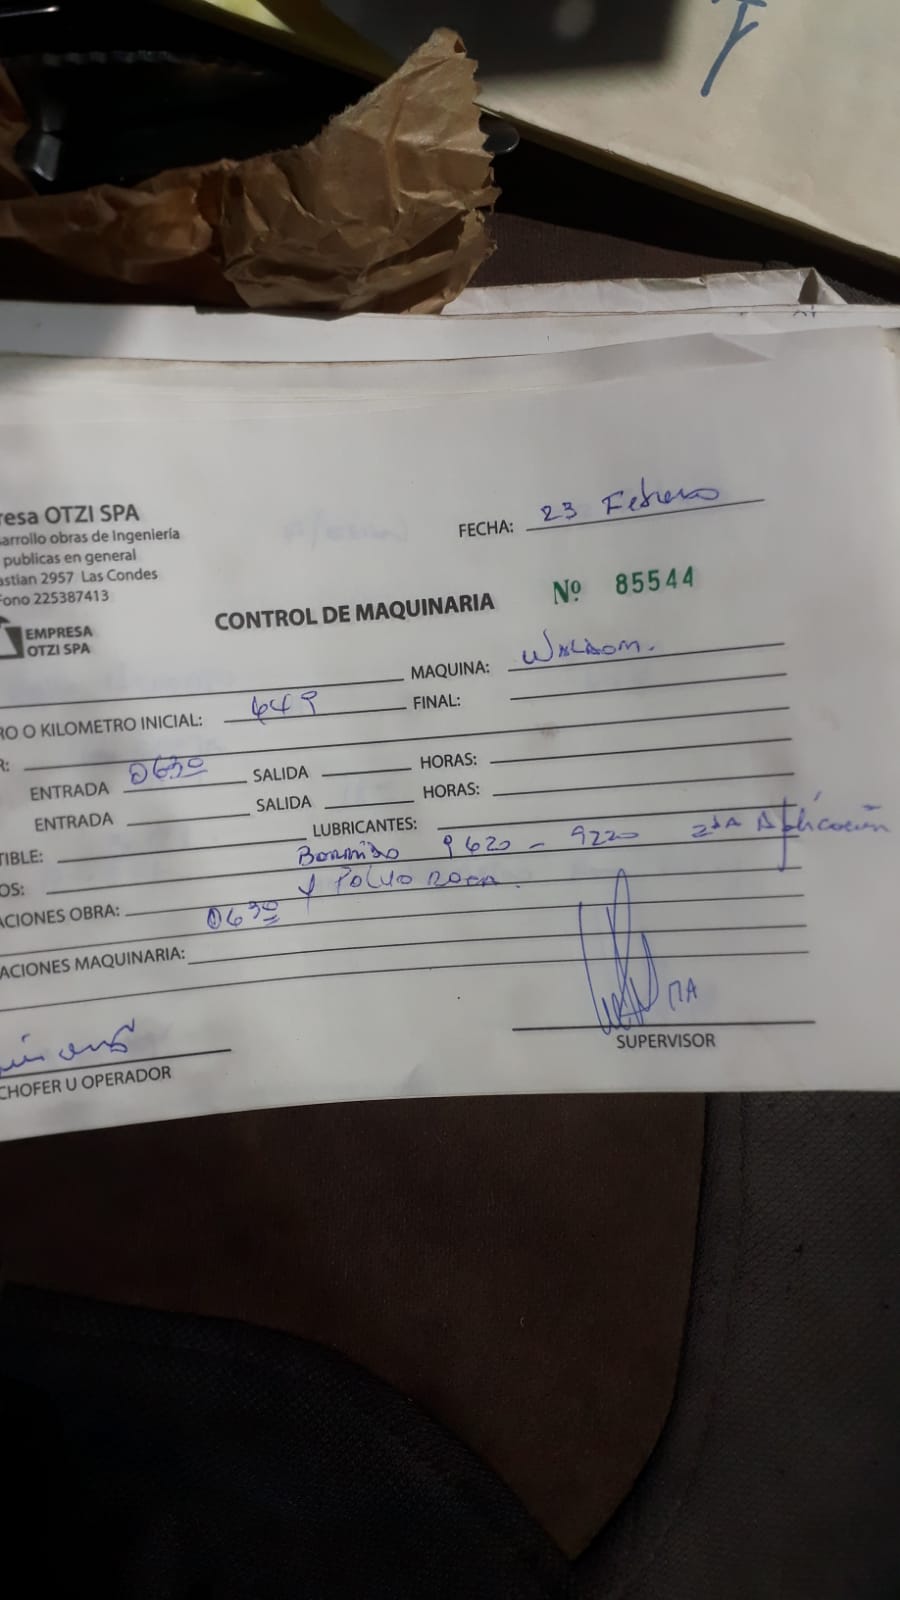 resa OTZI SPA
arrollo obras de Ingeniería
publicas en general
astian 2957 Las Condes
Fono 225387413
EMPRESA
OTZI SPA
FECHA: 23 Febrero
CONTROL DE MAQUINARIA
Nº 85544
MAQUINA:
RO O KILOMETRO INICIAL: 649
FINAL:
R:
ENTRADA 0630 SALIDA HORAS:
ENTRADA SALIDA HORAS:
TIBLE: LUBRICANTES:
OS: 9620 - 9220 2da Aplicación
Y Polvo Roca.
ACIONES OBRA: 0630
ACIONES MAQUINARIA:
CHOFER U OPERADOR
SUPERVISOR